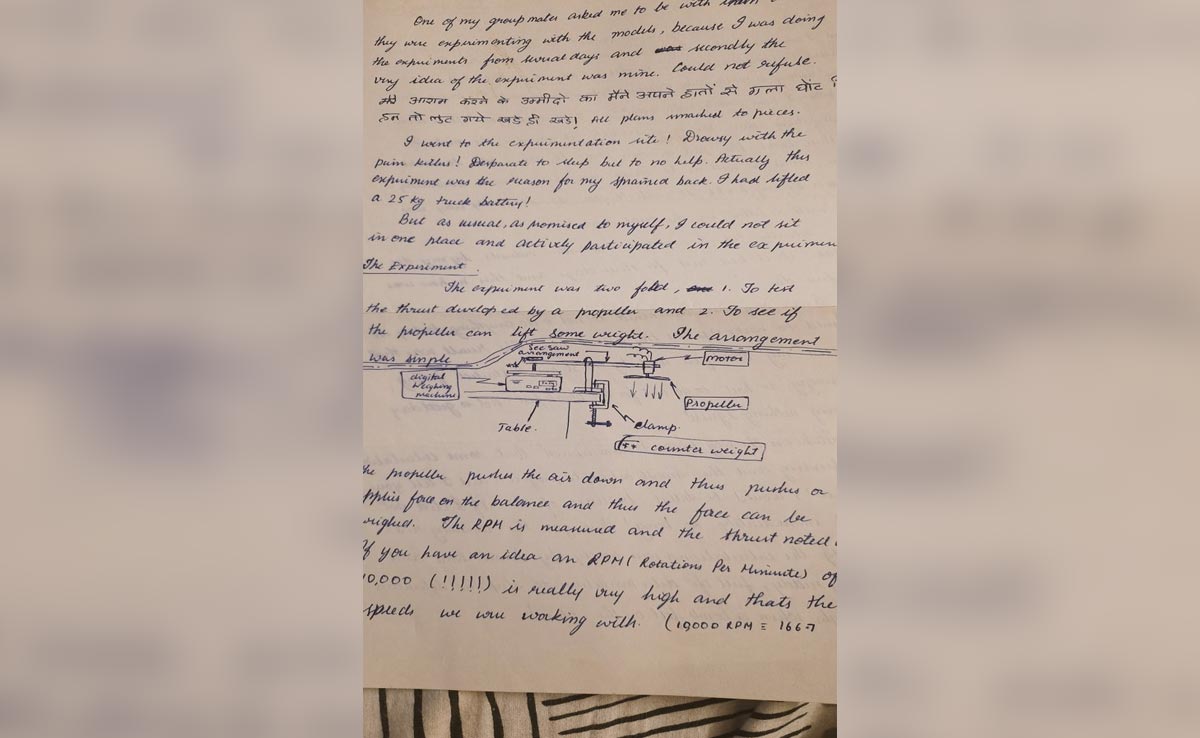 One of my groupmates asked me to be with them
they were experimenting with the models, because I was doing
the experiments from several days and secondly the
very idea of the experiment was mine. Could not refuse.
मेरे आराम करने के उम्मीदो का मैंने अपने हातों से गला घोंट
हम तो लुट गये खडे ही खडे! All plans smashed to pieces.
I went to the experimentation site! Drowsy with the
pain killers! Desparate to sleep but to no help. Actually this
experiment was the reason for my sprained back. I had lifted
a 25 kg truck battery!
But as usual, as promised to myself, I could not sit
in one place and actively participated in the experimen
The Experiment.
The experiment was two fold, 1. To test
the thrust developed by a propeller and 2. To see if
the propeller can lift some weight. The arrangement
was simple
See saw
arrangement
motor
digital
weighing
machine
Propeller
Table.
clamp.
counter weight
he propeller pushes the air down and thus pushes or
pplies force on the balance and thus the force can be
eighed. The RPM is measured and the thrust noted.
If you have an idea an RPM (Rotations Per Mininute) of
10,000 (!!!!!) is really very high and thats the
speeds we were working with. (10000 RPM = 166.7